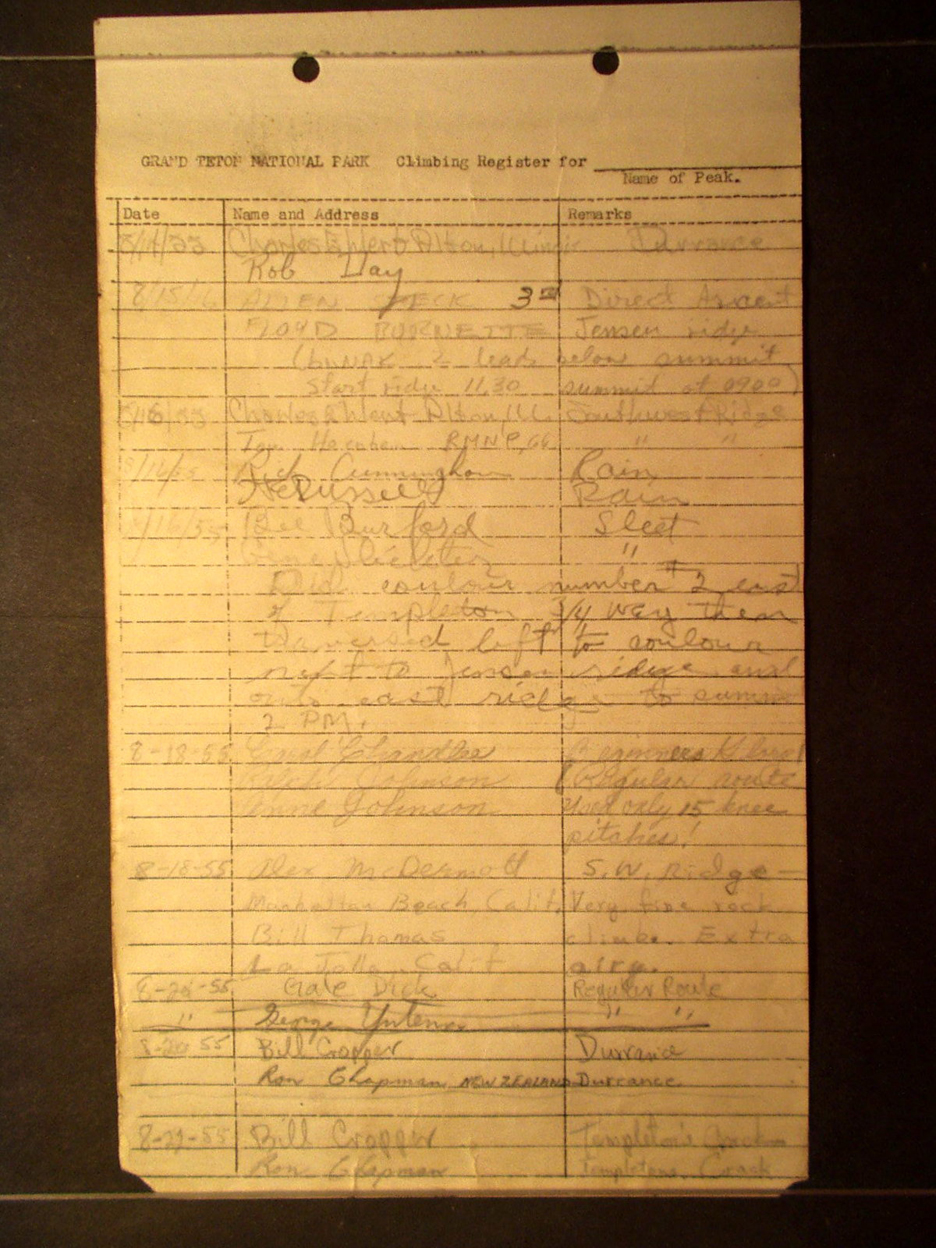 GRAND TETON NATIONAL PARK Climbing Register for
Name of Peak.
Date Name and Address Remarks
Alton, Illinois Durrance
Rob Day
8/15/ ALLEN STECK 3rd Direct Ascent
FLOYD BURNETTE Jensen ridge
2 leads below summit
Start ridge 11.30 summit at 0900)
Alton, Ill. Southwest Ridge
RMNP, " "
Rick Cunningham Rain
Russell Rain
8/16/55 Bill Burford Sleet
Gene "
Did coulour number #2 east
of Templeton 3/4 way then
traversed left to coulour
next to Jensen ridge and
onto east ridge to summit
2 PM.
8-18-55 Carol Chandler Beginners
Johnson (Regular route
Anne Johnson Used only 15 knee
pitches!
8-18-55 Alex McDermott S.W. Ridge -
Manhattan Beach, Calif. Very fine rock
Bill Thomas climb. Extra
La Jolla, Calif airy.
8-20-55 Gale Dick Regular Route
" George " "
8-20 55 Bill Cropper Durrance
Ron Chapman, NEW ZEALAND Durrance.
8-22-55 Bill Cropper Templeton's Crack
Ron Chapman Templetons Crack